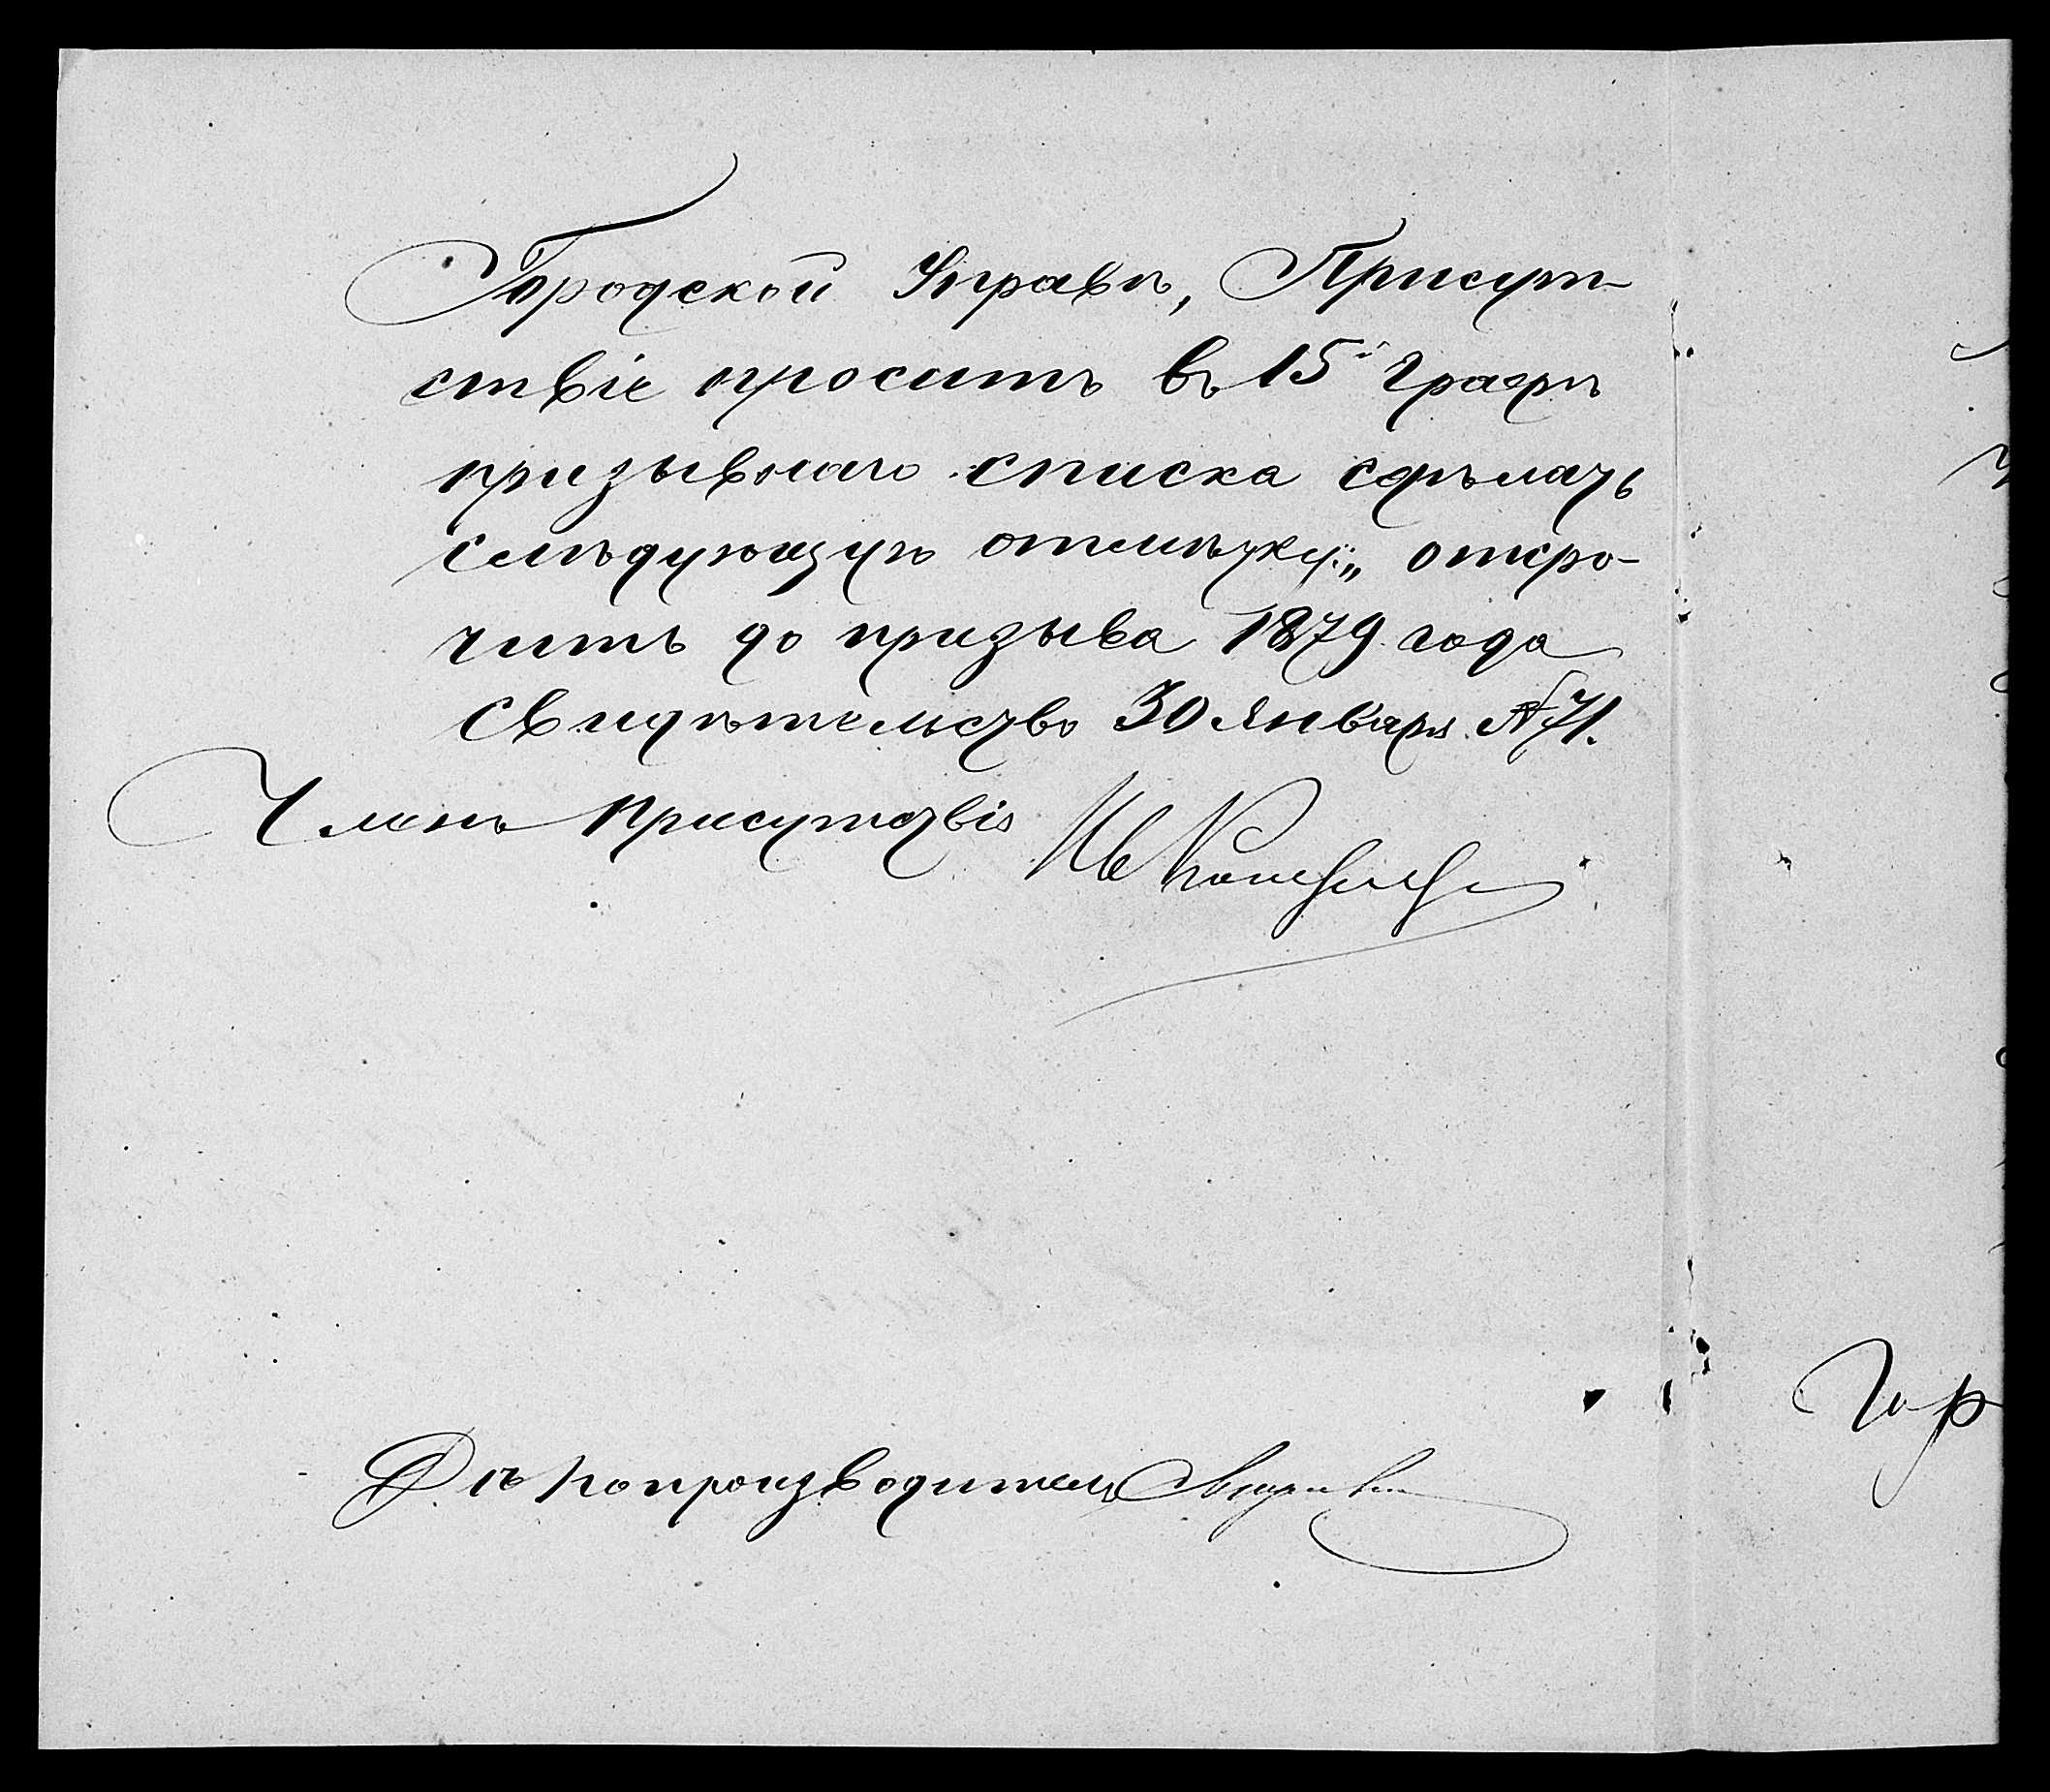 Городской Управѣ, Присут-
ствіе проситъ въ 15й графѣ
призывнаго списка сдѣлать
слѣдующую отмѣтку: „отсро-
чить до призыва 1879 года
свидѣтельство 30 Января № 71.
Членъ Присутствія Ив
Дѣлопроизводитель
Гор